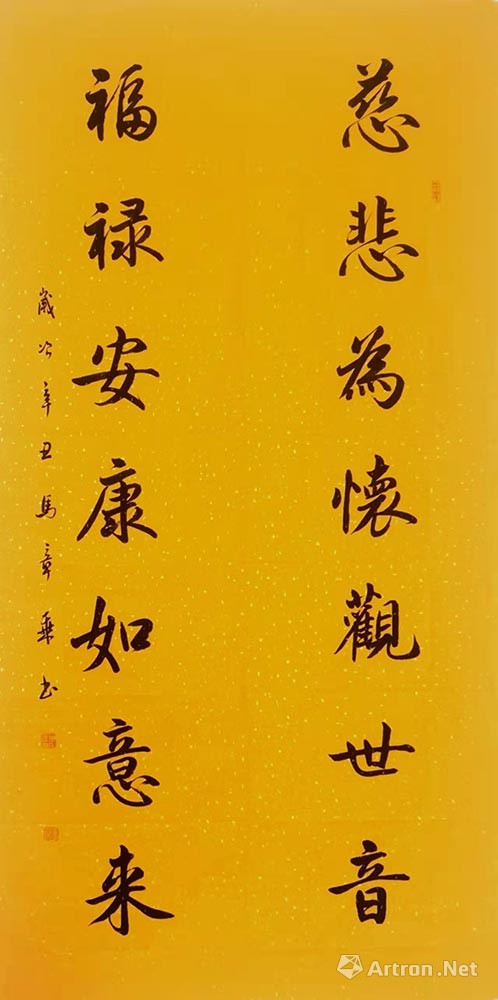 慈悲為懷觀世音
福禄安康如意来
歲次辛丑馬章乘书
Artron.Net